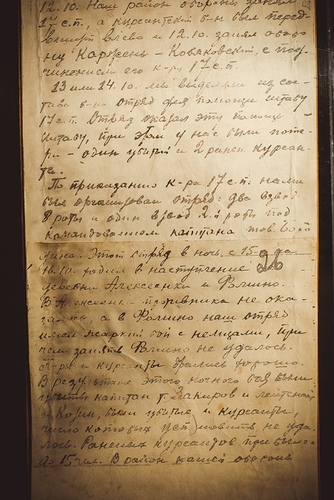 12.10. Наш район обороны занял
17 с.п., а курсантский б-н был перед-
винут влево и 12.10. занял оборо
ну Каржень - Коваковский, с под-
чинением его к-ру 17 с.п.
13 или 14.10. мы выделили из сос-
тава б-на отряд для помощи штабу
17 с.п. Отряд оказал эту помощь
штабу, при этом у нас были поте-
ри - один убитый и 2 ранен. курсан-
та.
По приказанию к-ра 17 с.п. нами
был организован отряд: два взвода
8 роты и один взвод 2-й роты под
командованием капитана тов.
Этот отряд в ночь с 15
16.10. ходил в наступление
деревни Алексеевка и Фомино.
В Алексеевке противника не ока-
залось, а в Фомино наш отряд
имел жаркий бой с немцами, при
чем занять Фомино не удалось.
и курсанты дрались хорошо.
В результате этого ночного боя были
убиты капитан т. Закиров и лейтенант
были убитые и курсанты,
число которых установить не уда
лось. Раненых курсантов прибыло
до 15 чел. В район нашей обороны